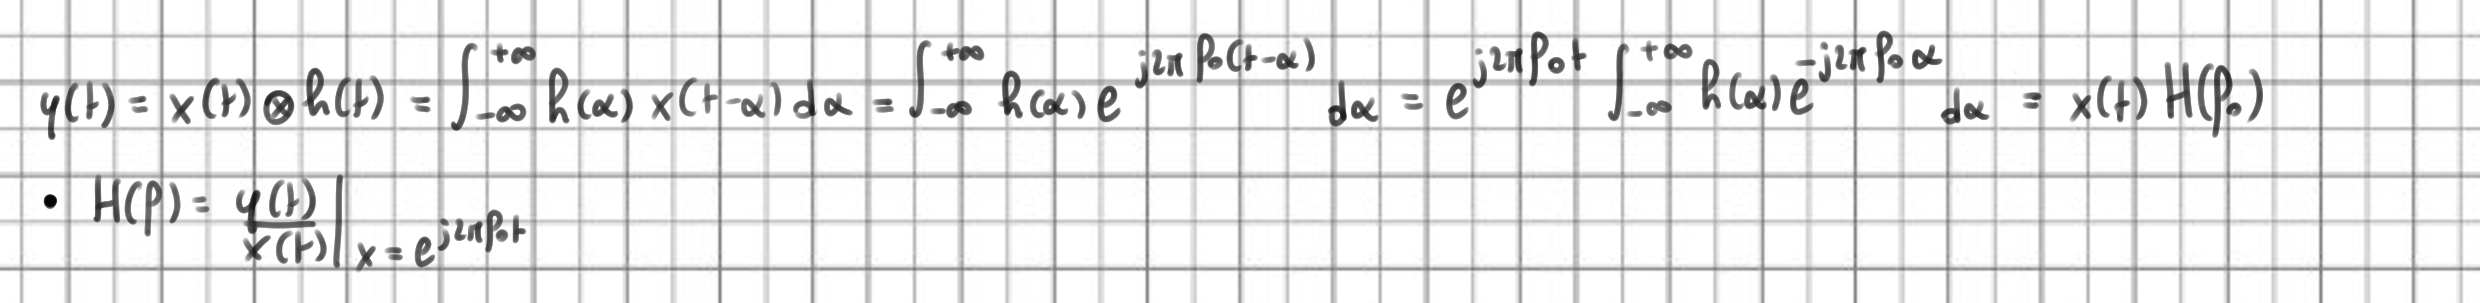 y(t) = x(t) ⊗ h(t) = ∫_{-∞}^{+∞} h(α) x(t-α) dα = ∫_{-∞}^{+∞} h(α) e^{j2πf₀(t-α)} dα = e^{j2πf₀t} ∫_{-∞}^{+∞} h(α) e^{-j2πf₀α} dα = x(t) H(f₀)
• H(f) = y(t)/x(t) |_{x = e^{j2πf₀t}}